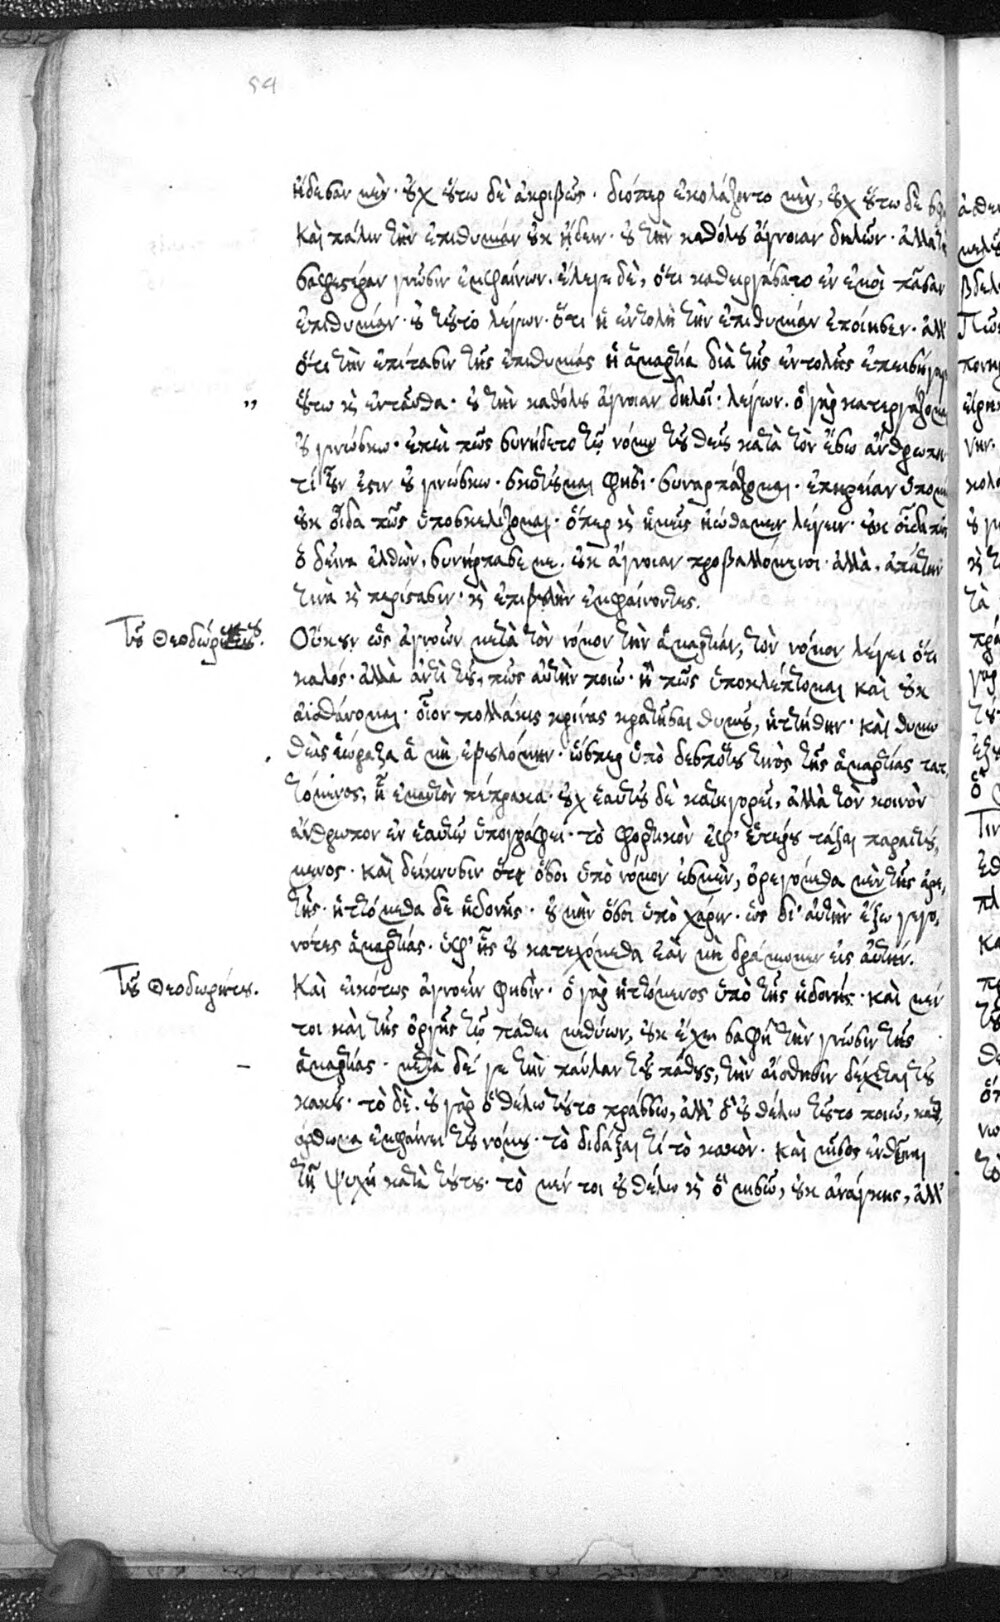 54
ᾔδεσαν μὲν· οὐχ οὕτω δὲ ἀκριβῶς· διόπερ ἐκολάζοντο μὲν, οὐχ οὕτω δὲ
καὶ πάλιν τὴν ἐπιθυμίαν οὐκ ᾔδειν· οὐ τὴν καθόλου ἄγνοιαν δηλῶν· ἀλλὰ τὴν
σαφεστέραν γνῶσιν ἐμφαίνων. ἔλεγε δὲ, ὅτι κατειργάσατο ἐν ἐμοὶ πᾶσαν
ἐπιθυμίαν· οὐ τοῦτο λέγων· ὅτι ἡ ἐντολὴ τὴν ἐπιθυμίαν ἐποίησεν· ἀλλ'
ὅτι τὴν ἐπίτασιν τῆς ἐπιθυμίας ἡ ἁμαρτία διὰ τῆς ἐντολῆς ἐπεισήγαγε
οὕτω καὶ ἐνταῦθα· οὐ τὴν καθόλου ἄγνοιαν δηλοῖ· λέγων. ὃ γὰρ κατεργάζομαι
οὐ γινώσκω· ἐπεὶ πῶς συνήδετο τῷ νόμῳ τοῦ θεοῦ κατὰ τὸν ἔσω ἄνθρωπον
τί οὖν ἐστιν οὐ γινώσκω· σκοτοῦμαι φησὶ· συναρπάζομαι· ἐπήρειαν ὑπομένω
οὐκ οἶδα πῶς ὑποσκελίζομαι· ὅπερ καὶ ἡμεῖς εἰώθαμεν λέγειν· οὐκ οἶδα πῶς
ὁ δεῖνα ἐλθὼν, συνήρπασέ με. οὐκ ἄγνοιαν προβαλλόμενοι· ἀλλὰ, ἀπάτην
τινὰ καὶ περίστασιν· καὶ ἐπιβουλὴν ἐμφαίνοντες.
Οὔκουν ὡς ἀγνοῶν μετὰ τὸν νόμον τὴν ἁμαρτίαν, τὸν νόμον λέγει ὅτι
καλός· ἀλλὰ ἀντὶ τοῦ, πῶς αὐτὴν ποιῶ· ἢ πῶς ὑποκλέπτομαι καὶ οὐκ
αἰσθάνομαι· οἷον πολλάκις κρίνας κρατῆσαι θυμοῦ, ἡττήθην· καὶ θυμω
θεὶς ἔπραξα ἃ μὴ ἐβουλόμην· ὥσπερ ὑπὸ δεσπότου τινὸς τῆς ἁμαρτίας ταττόμενος, ᾗ ἐμαυτὸν πέπρακα· οὐχ ἑαυτοῦ δὲ κατηγορεῖ, ἀλλὰ τὸν κοινὸν
ἄνθρωπον ἐν ἑαυτῷ ὑπογράφει· τὸ φορτικὸν ἐφ' ἑτέρου τάξαι παραιτού,
μενος· καὶ δείκνυσιν ὅτι ὅσοι ὑπὸ νόμον ἐσμὲν, ὀρεγόμεθα μὲν τῆς ἀρε,
τῆς· ἡττόμεθα δὲ ἡδονῆς· οὐ μὴν ὅσοι ὑπὸ χάριν· ὡς δι' αὐτὴν ἔξω γεγο,
νότες ἁμαρτίας· ὑφ' ἧς οὐ κατεχόμεθα ἐὰν μὴ δράμωμεν εἰς αὐτήν.
Τοῦ Θεοδωρήτου.
Καὶ εἰκότως ἀγνοεῖν φησὶν· ὁ γὰρ ἡττόμενος ὑπὸ τῆς ἡδονῆς· καὶ μέν
τοι καὶ τῆς ὀργῆς τῷ πάθει μεθύων, οὐκ ἔχει σαφῆ τὴν γνῶσιν τῆς
ἁμαρτίας· μετὰ δέ γε τὴν παῦλαν τοῦ πάθους, τὴν αἴσθησιν δέχεται τοῦ
κακοῦ· τὸ δὲ. οὐ γὰρ ὃ θέλω τοῦτο πράσσω, ἀλλ' ὃ οὐ θέλω τοῦτο ποιῶ, κατ
όρθωμα ἐμφαίνει τοῦ νόμου· τὸ διδάξαι τί τὸ κακὸν· καὶ μῖσος ἐνθεῖναι
τῇ ψυχῇ κατὰ τούτου· τὸ μέν τοι οὐ θέλω καὶ ὃ μισῶ, οὐκ ἀνάγκης, ἀλλ'